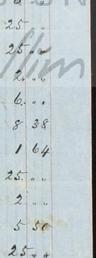 25 " "
25 " "
2 " "
6 " "
8 38
1 64
25 " "
2 " "
5 50
25 " "